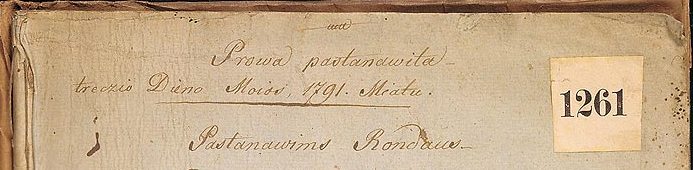 Prowa pastanawita
treczio Dieno Moios, 1791. Miatu.
1261
Pastanawims Rondaus